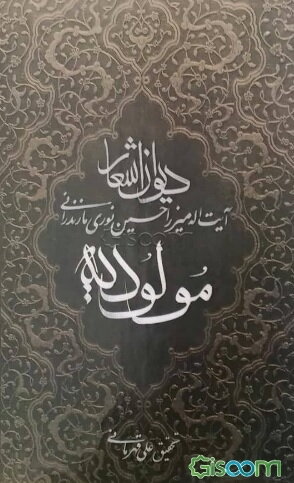 دیوان اشعار
آیت اله میرزا حسین نوری مازندرانی
مولودیه
تحقیق علی قهرمانی
Gisoom